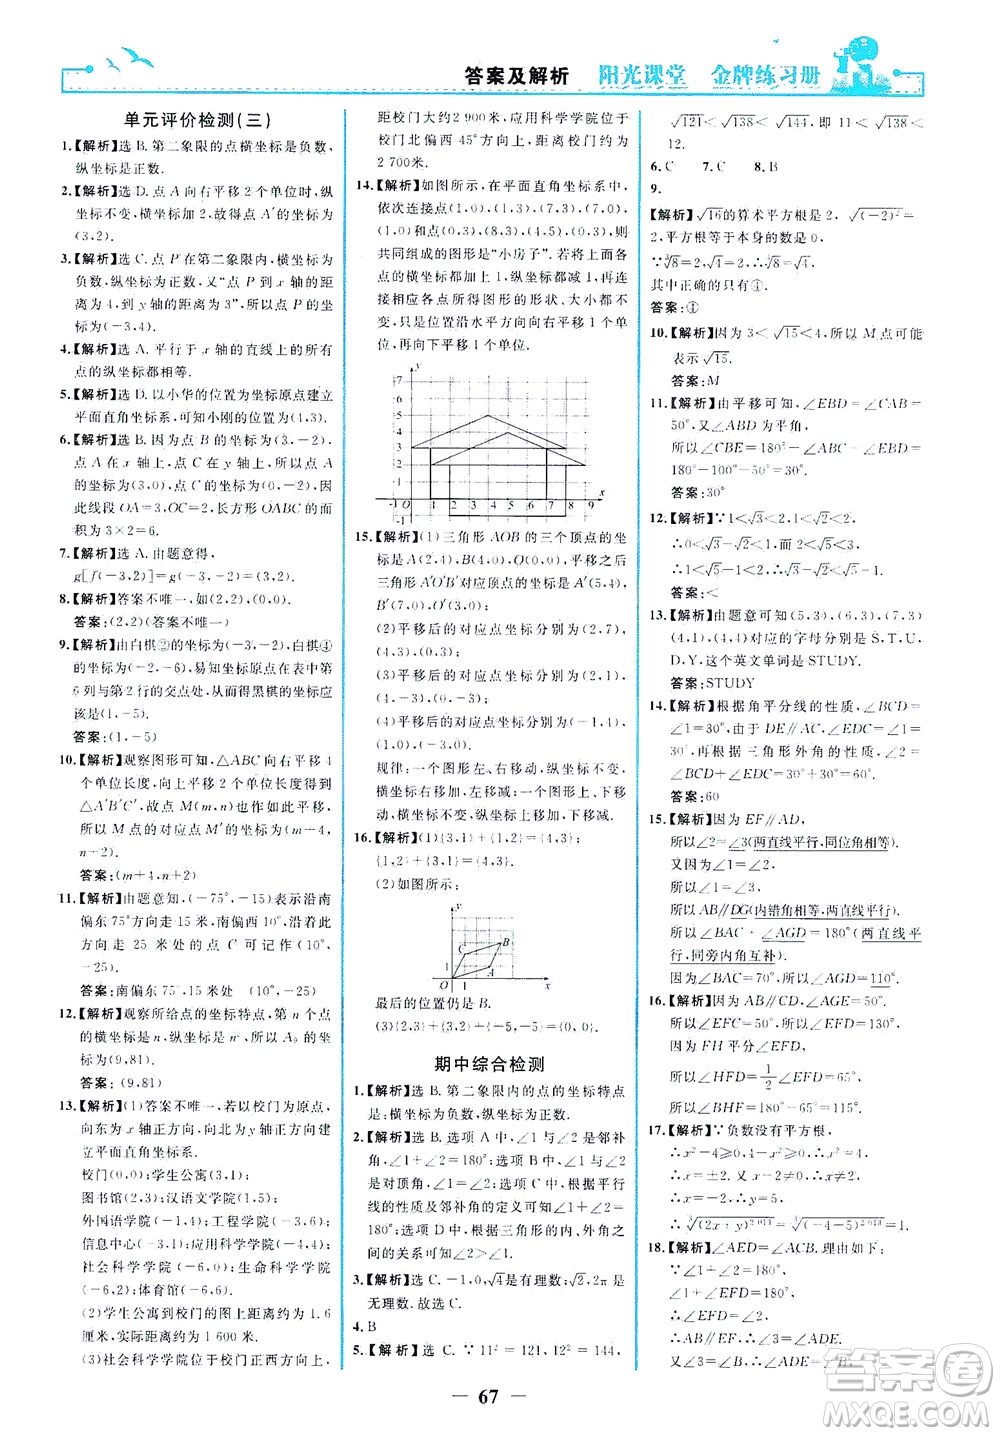 答案及解析 阳光课堂 金牌练习册
单元评价检测(三)
1.【解析】选 B.第二象限的点横坐标是负数,
纵坐标是正数.
2.【解析】选 D.点 A 向右平移 2 个单位时,纵
坐标不变,横坐标加 2,故得点 A′的坐标为
(3,2).
3.【解析】选 C.点 P 在第二象限内,横坐标为
负数,纵坐标为正数,又“点 P 到 x 轴的距
离为 4,到 y 轴的距离为 3”,所以点 P 坐标
为(-3,4).
4.【解析】选 A.平行于 x 轴的直线上的所有
点的纵坐标都相等.
5.【解析】选 D.以小华的位置为坐标原点建立
平面直角坐标系,可知小刚的位置为(4,3).
6.【解析】选 B.因为点 B 的坐标为(3,-2),
点 A 在 x 轴上,点 C 在 y 轴上,所以点 A
的坐标为(3,0),点 C 的坐标为(0,-2),因此
线段 OA=3,OC=2,长方形 OABC 的面积
为 3×2=6.
7.【解析】选 A.由题意得,
g[f(-3,2)]=g(-3,-2)=(3,2).
8.【解析】答案不唯一,如(2,2),(0,0).
答案:(2,2)(答案不唯一)
9.【解析】由白棋②的坐标为(-3,-2),白棋④
的坐标为(-2,-6),易知坐标原点在表中第
6 列与第 2 行的交点处,从而得黑棋的坐标应
该是(1,-5).
答案:(1,-5)
10.【解析】观察图形可知,△ABC 向右平移 4
个单位长度,向上平移 2 个单位长度,得到
△A′B′C′,故点 M(m,n)也作如此平移,
所以 M 点的对应点 M′的坐标为(m+4,
n+2).
答案:(m+4,n+2)
11.【解析】由题意知,(-75°,-15)表示沿南
偏东 75°方向走 15 米,南偏西 10°方向
走 25 米处的点 C 可记作(10°,
-25).
答案:南偏东75°,15米处 (10°,-25)
12.【解析】观察所给点的坐标特点,第 n 个点
的横坐标为 n,纵坐标为 n²,所以 A₉ 的坐
标为(9,81).
答案:(9,81)
13.【解析】(1)答案不唯一,如以校门为原点,
向东为 x 轴正方向,向北为 y 轴正方向建立
平面直角坐标系.
校门(0,0);学生公寓(-1,3);
图书馆(2,3);汉语文学院(-1,5);
外国语学院(-3,4);工程学院(-6,4);
信息中心(-6,2);应用科学学院(-4,4);
社会科学学院(-6,0);生命科学学院
(-6,2);体育馆(-6,6).
(2)学生公寓到校门的图上距离大约为 1.6
厘米,实际距离大约为 1 600米.
(3)社会科学学院位于校门正西方向上,
距校门大约 2 900 米,应用科学学院位于
校门北偏西 45°方向上,与校门的距离约
2 700米.
14.【解析】如图所示,在平面直角坐标系中,
依次连接点(1,0),(1,3),(7,3),(7,0),
(1,0)和点(0,3),(8,3),(4,5),(0,3)
共同组成的图形是“小房子”.若将上面各
点的横坐标都加 1,纵坐标都减 1,再连接
这些点,所得图形的形状、大小都不
变,只是位置沿水平方向向右平移 1 个单
位,再向下平移 1 个单位.
15.【解析】(1)三角形 AOB 的三个顶点的坐标
是 A(2,4),B(4,0),O(0,0),平移之后
三角形 A′O′B′对应顶点的坐标是 A′(5,4),
B′(7,0),O′(3,0);
(2)平移后的对应点坐标分别为(2,7),
(4,3),(0,3);
(3)平移后的对应点坐标分别为(2,1),
(4,-3),(0,-3);
(4)平移后的对应点坐标分别为(-1,4),
(1,0),(-3,0).
规律:一个图形左、右移动,纵坐标不变,
横坐标左减右加;上、下移动,横坐标不
变,纵坐标上加下减.
16.【解析】(1){3,1}+{1,2}={4,3};
{1,2}+{3,1}={4,3}.
(2)如图所示,
最后的位置仍是 B.
(3){2,3}+{3,2}+{-5,-5}={0,0}.
期中综合检测
1.【解析】选 B.第二象限内的点的坐标特点
是:横坐标为负数,纵坐标为正数.
2.【解析】选 D.选项 A 中,∠1 与∠2 是邻补
角,∠1+∠2=180°;选项 B 中,∠1 与∠2
是对顶角,∠1=∠2;选项 C 中,根据平行
线的性质和邻补角的定义可知∠1+∠2=
180°;选项 D 中,根据三角形的内、外角之
间的关系可知∠2>∠1.
3.【解析】选 C.-1,√4是有理数;√2,2π 是
无理数.故选 C.
4.B
5.【解析】选 C. ∵11²=121,12²=144,
√121<√138<√144,即 11<√138<
12.
6.C 7.C 8.B
9.
【解析】√16的算术平方根是 2,√(-2)²=
2,平方根等于本身的数是 0,
∵∛8=2,√4=2,∴∛8=√4.
其中正确的只有①.
答案:①
10.【解析】因为 3<√15<4,所以 M 点可能
表示√15.
答案:M
11.【解析】由平移可知,∠EBD=∠CAB=
50°,又∠ABD 为平角,
所以∠CBE=180°-∠ABC-∠EBD=
180°-100°-50°=30°.
答案:30°
12.【解析】∵1<√3<2,1<√2<2,
∴0<√3-1<1,0<√2-1<1,
∴1<√5-1<2,0<√2-1<1,
答案:<
13.【解析】由题意可知(5,3),(6,3),(7,3)
(4,1),(4,4)对应的字母分别是 S,T,U,
D,Y,这个英文单词是 STUDY.
答案:STUDY
14.【解析】根据角平分线的性质,∠BCD=
∠1=30°,由于 DE∥AC,∠EDC=∠1=
30°.再根据三角形外角的性质,∠2=
∠BCD+∠EDC=30°+30°=60°.
答案:60
15.【解析】因为 EF∥AD,
所以∠2=∠3(两直线平行,同位角相等).
又因为∠1=∠2,
所以∠1=∠3.
所以 AB∥DG(内错角相等,两直线平行).
所以∠BAC+∠AGD=180°(两直线平
行,同旁内角互补).
因为∠BAC=70°,所以∠AGD=110°.
16.【解析】因为 AB∥CD,∠AGE=50°,
所以∠EFC=50°,所以∠EFD=130°,
因为 FH 平分∠EFD,
所以∠HFD=1/2∠EFD=65°,
所以∠BHF=180°-65°=115°.
17.【解析】∵负数没有平方根,
∴x²-4≥0,4-x²≥0,∴x²-4=0,
∴x=±2.又∵x-2≠0,
∴x=-2,∴y=5,
18.【解析】∠AED=∠ACB.理由如下:
∵∠1+∠2=180°,
∠1+∠EFD=180°,
∴∠EFD=∠2,
∴AB∥EF,∴∠3=∠ADE.
又∵∠3=∠B,∴∠ADE=∠B,
— 67 —
答案圈
MXQE.COM